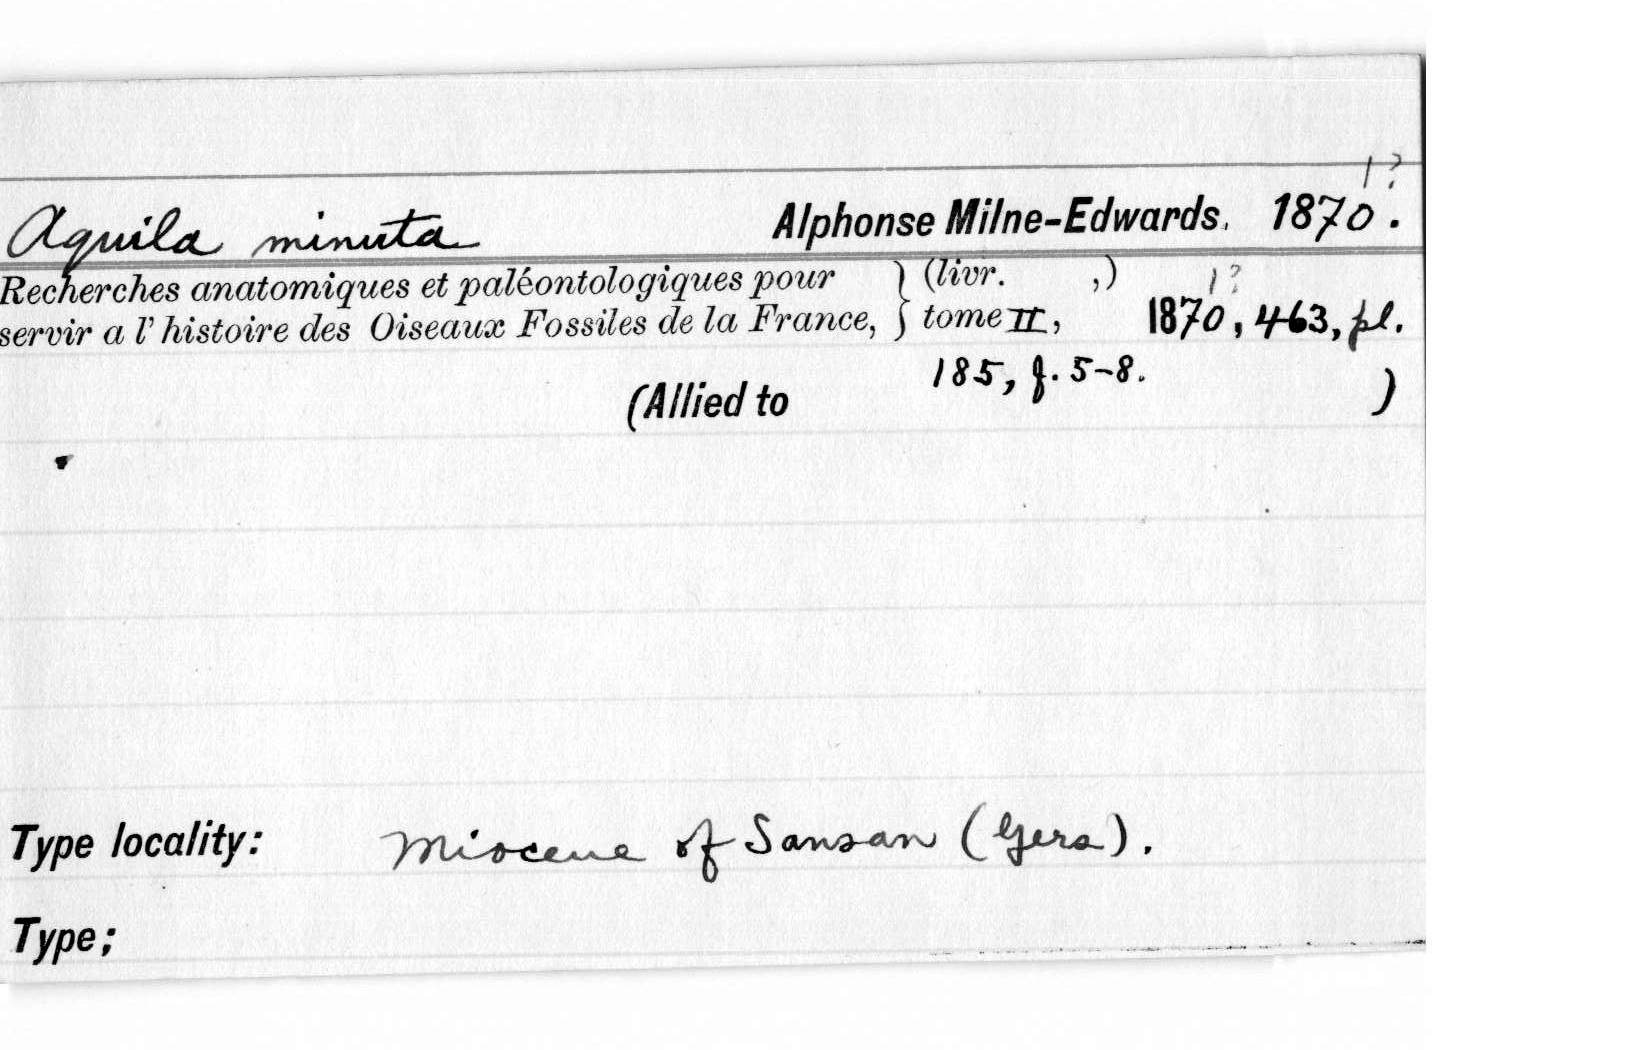 1?
Aquila minuta Alphonse Milne-Edwards. 1870.
Recherches anatomiques et paléontologiques pour } (livr. ,) 1?
servir a l'histoire des Oiseaux Fossiles de la France, } tome II, 1870, 463, pl.
185, f. 5-8.
(Allied to )
Type locality: Miocene of Sansan (Gers).
Type;